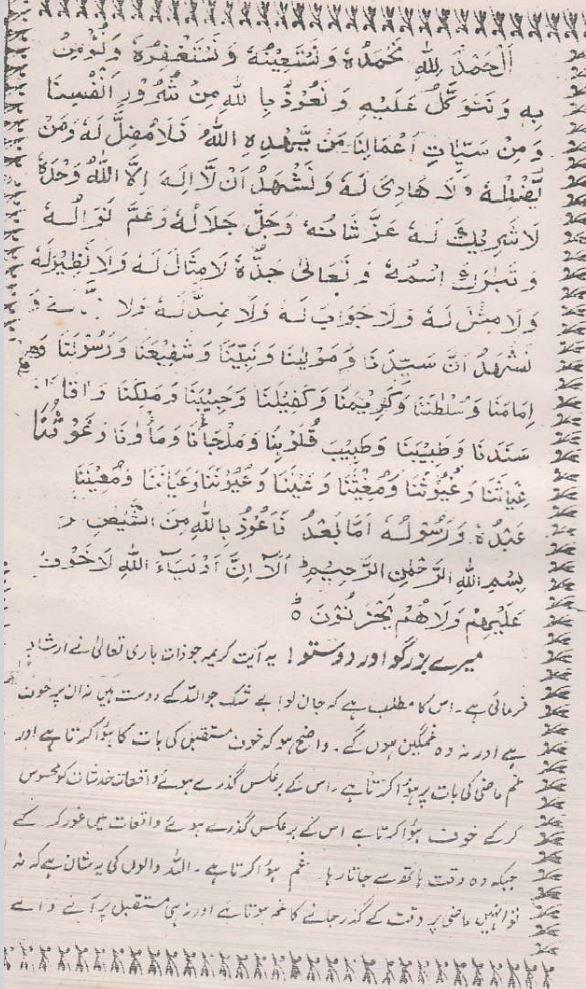 اَلْحَمْدُ لِلّٰہِ نَحْمَدُہٗ وَنَسْتَعِیْنُہٗ وَنَسْتَغْفِرُہٗ وَنُؤْمِنُ
بِہٖ وَنَتَوَکَّلُ عَلَیْہِ وَنَعُوْذُ بِاللّٰہِ مِنْ شُرُوْرِ اَنْفُسِنَا
وَمِنْ سَیِّاٰتِ اَعْمَالِنَا مَنْ یَّھْدِہِ اللّٰہُ فَلَا مُضِلَّ لَہٗ وَمَنْ
یُّضْلِلْہُ وَلَا ھَادِیَ لَہٗ وَنَشْھَدُ اَنْ لَّا اِلٰہَ اِلَّا اللّٰہُ وَحْدَہٗ
لَا شَرِیْکَ لَہٗ عَزَّ شَانُہٗ وَجَلَّ جَلَالُہٗ وَعَمَّ نَوَالُہٗ
وَتَبَارَکَ اسْمُہٗ وَتَعَالٰی جَدُّہٗ لَا مِثَالَ لَہٗ وَلَا نَظِیْرَ لَہٗ
وَلَا مِثْلَ لَہٗ وَلَا جَوَابَ لَہٗ وَلَا نِدَّ لَہٗ وَلَا وَ
نَشْھَدُ اَنَّ سَیِّدَنَا وَمَوْلٰنَا وَنَبِیَّنَا وَشَفِیْعَنَا وَرَسُوْلَنَا وَ
اِمَامَنَا وَسُلْطَنَنَا وَکَرِیْمَنَا وَکَفِیْلَنَا وَحَبِیْبَنَا وَمَلِکَنَا وَاٰقَا
سَنَدَنَا وَطَبِیْبَنَا وَطَبِیْبَ قُلُوْبِنَا وَمَلْجَانَا وَمَاْوٰنَا وَغَوْثَنَا
غِیَاثَنَا وَغُیُوْثَنَا وَمُغِیْثَنَا وَغَیْثَنَا وَمُعِیْنَنَا
عَبْدُہٗ وَرَسُوْلُہٗ اَمَّا بَعْدُ فَاَعُوْذُ بِاللّٰہِ مِنَ الشَّیْطٰنِ
بِسْمِ اللّٰہِ الرَّحْمٰنِ الرَّحِیْمِ اَلَآ اِنَّ اَوْلِیَآءَ اللّٰہِ لَا خَوْفٌ
عَلَیْھِمْ وَلَا ھُمْ یَحْزَنُوْنَ ۝
میرے بزرگو اور دوستو! یہ آیت کریمہ جو ذات باری تعالیٰ نے ارشاد
فرمائی ہے۔ اس کا مطلب ہے کہ جان لو! بے شک جو اللہ کے دوست ہیں نہ ان پر خوف
ہے اور نہ وہ غمگین ہوں گے۔ واضح ہو کہ خوف مستقبل کی بات کا ہؤا کرتا ہے اور
غم ماضی کی بات پر ہؤا کرتا ہے۔ اس کے برعکس گذرے ہوئے واقعات خدشات کو محسوس
کر کے خوف ہؤا کرتا ہے اس کے برعکس گذرے ہوئے واقعات میں غور کر کے
جبکہ وہ وقت ہاتھ سے جاتا رہا۔ غم ہؤا کرتا ہے۔ اللہ والوں کی یہ شان ہے کہ نہ
تو انہیں ماضی پر وقت کے گذر جانے کا غم ہوتا ہے اور نہ ہی مستقبل پر آنے والے